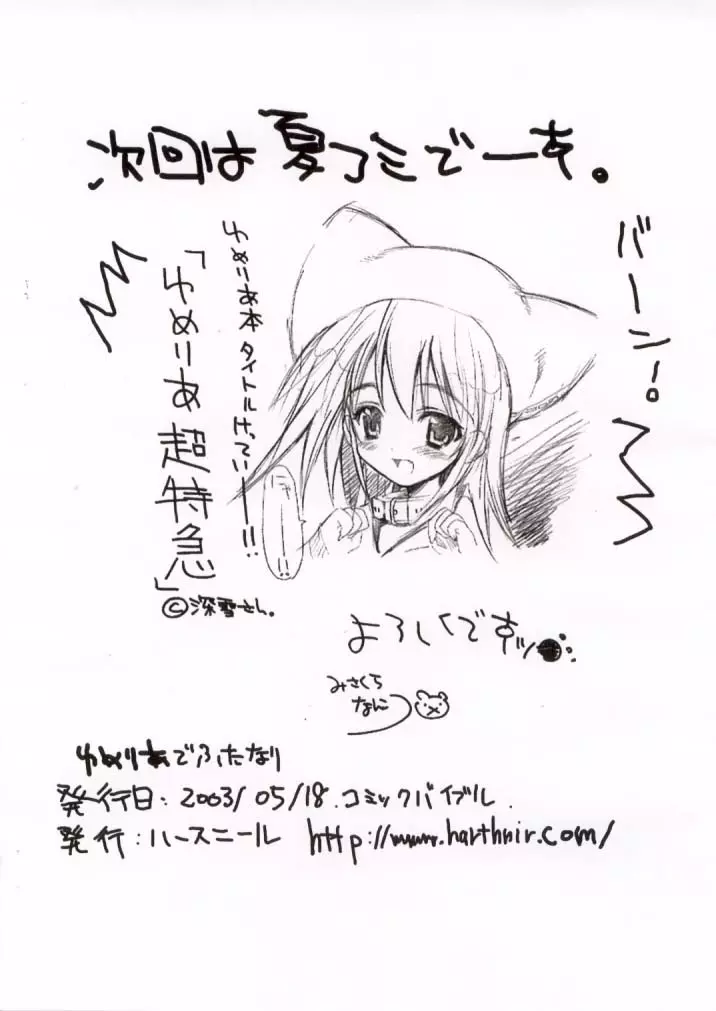 次回は夏コミでーす。
バーン!
ゆめりあ本タイトルけってい――!!
「ゆめりあ超特急」
©深雪さん。
よろしくですッ
みさくら
なんこつ
ゆめりあでふたなり
発行日:2003/05/18.コミックバイブル.
発行:ハースニール http://www.harthnir.com/